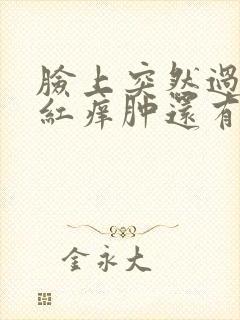 臉上突然過
紅癢肿還有
金永大